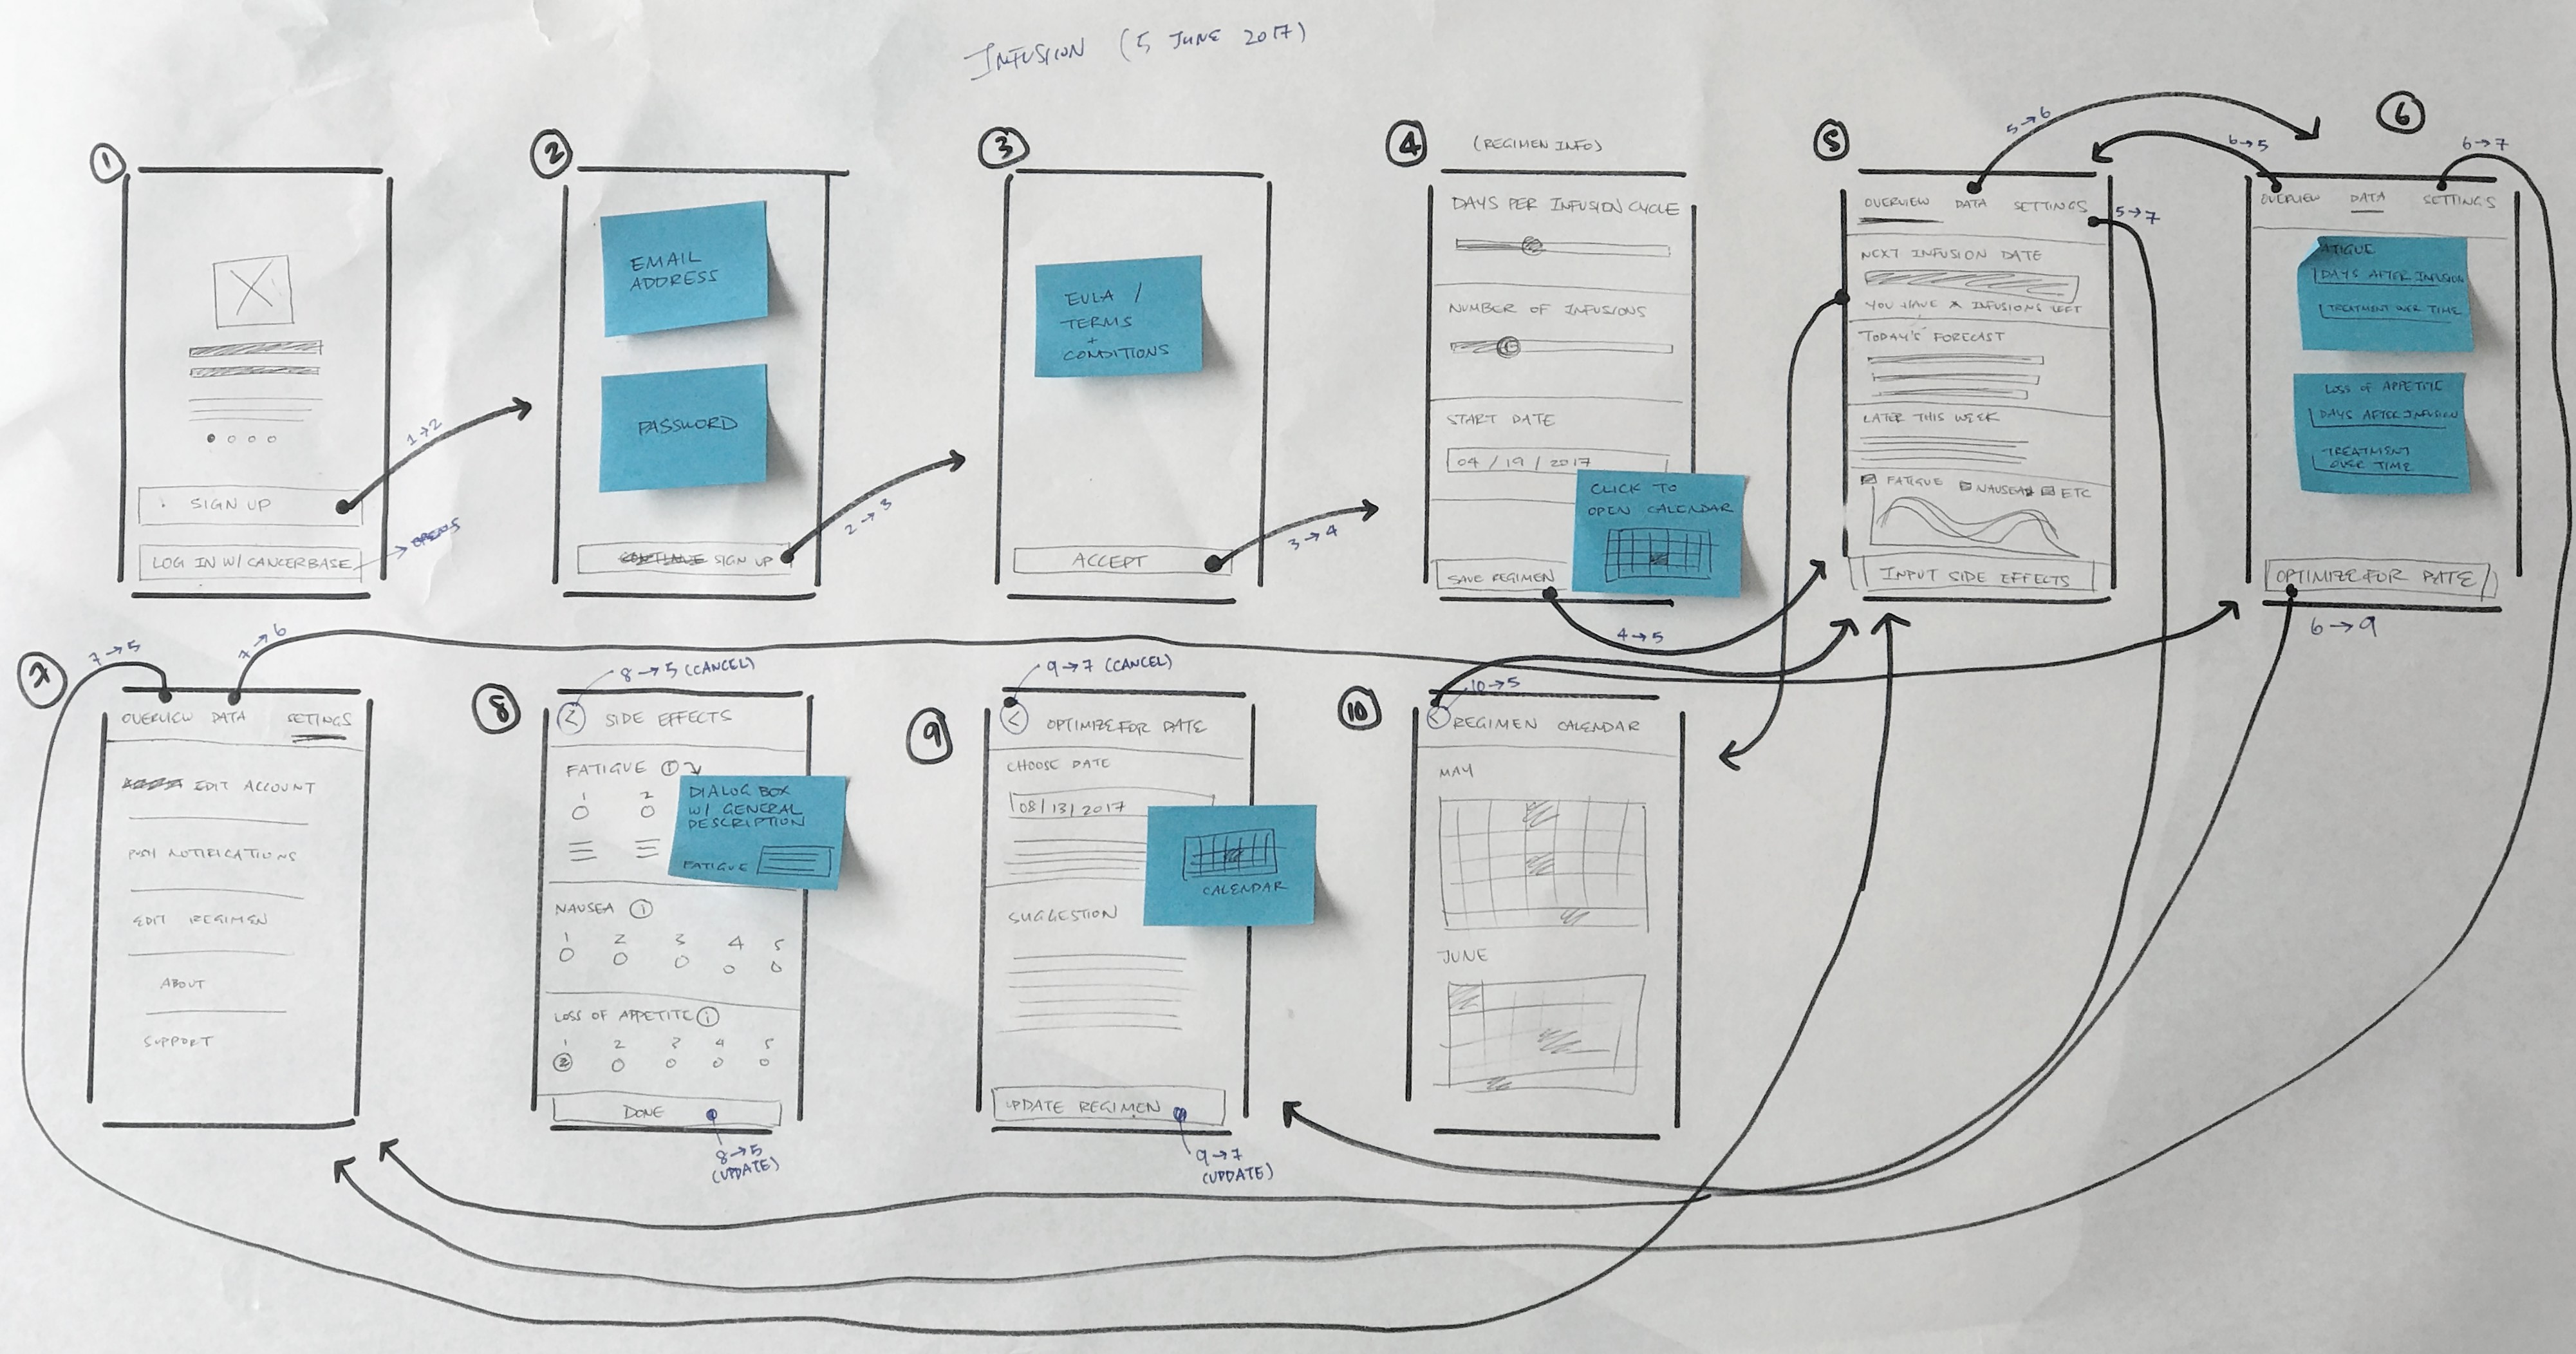 INFUSION (5 JUNE 2017)
1
SIGN UP
LOG IN W/ CANCERBASE
1→2
2
EMAIL
ADDRESS
PASSWORD
SIGN UP
2→3
3
EULA /
TERMS
+
CONDITIONS
ACCEPT
3→4
4
(REGIMEN INFO)
DAYS PER INFUSION CYCLE
NUMBER OF INFUSIONS
START DATE
04 / 19 / 2017
CLICK TO
OPEN CALENDAR
SAVE REGIMEN
4→5
5
5→6
OVERVIEW DATA SETTINGS
5→7
NEXT INFUSION DATE
YOU HAVE X INFUSIONS LEFT
TODAY'S FORECAST
LATER THIS WEEK
FATIGUE NAUSEA ETC
INPUT SIDE EFFECTS
6
6→5
6→7
OVERVIEW DATA SETTINGS
FATIGUE
DAYS AFTER INFUSION
TREATMENT OVER TIME
LOSS OF APPETITE
DAYS AFTER INFUSION
TREATMENT
OVER TIME
OPTIMIZE FOR DATE
6→9
7
7→5
7→6
OVERVIEW DATA SETTINGS
EDIT ACCOUNT
PUSH NOTIFICATIONS
EDIT REGIMEN
ABOUT
SUPPORT
8
8→5 (CANCEL)
< SIDE EFFECTS
FATIGUE i
1 2
DIALOG BOX
W/ GENERAL
DESCRIPTION
FATIGUE
NAUSEA i
1 2 3 4 5
LOSS OF APPETITE i
1 2 3 4 5
DONE
8→5
(UPDATE)
9
9→7 (CANCEL)
< OPTIMIZE FOR DATE
CHOOSE DATE
08/13/2017
CALENDAR
SUGGESTION
UPDATE REGIMEN
9→7
(UPDATE)
10
10→5
< REGIMEN CALENDAR
MAY
JUNE